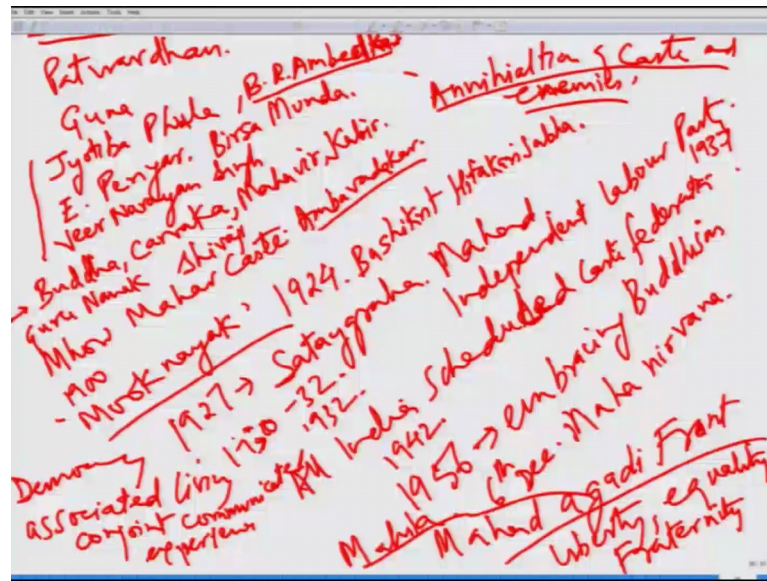 Patwardhan.
Guna
Jyotiba Phule, B.R. Ambedkar
E. Periyar. Birsa Munda.
Veer Narayan Singh
Buddha, Carvaka, Mahavir, Kabir.
Guru Nanak Shivaji
Mhow Mahar Caste. Ambavadekar.
1900
- Mooknayak, 1924. Bashikrit Hitakarisabha.
1927 → Sataygraha. Mahad
1930 -32. Independent Labour Party.
1932. 1937
All India Scheduled Caste federation
1942.
1956 → embracing Buddhism
6 Dec. Maha nirvana.
Annihialtion of Caste and
enemies.
Democracy
associated living
conjoint communicated
experience
Mahad agadi Front
liberty, equality
Fraternity